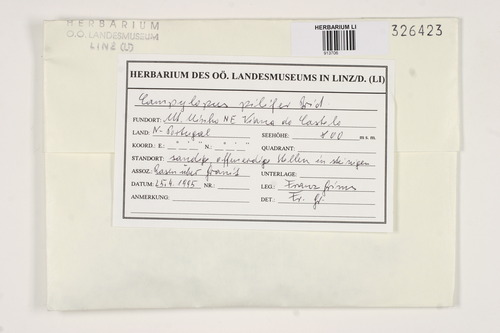 HERBARIUM
O.Ö. LANDESMUSEUM
LINZ (LI)
HERBARIUM LI
913706
326423
HERBARIUM DES OÖ. LANDESMUSEUMS IN LINZ/D. (LI)
Campylopus pilifer Brid
FUNDORT: Mt. NE Viana do Castelo
LAND: N-Portugal SEEHÖHE: 400 m s. m.
KOORD.: E.: ° ' " N.: ° ' " QUADRANT:
STANDORT: sandige, offenerdige Stellen in steinigen
ASSOZ.: Rasen über Granit UNTERLAGE:
DATUM: 25.4.1995 NR.: LEG.: Franz Grims
ANMERKUNG: DET.: Fr. Gr.